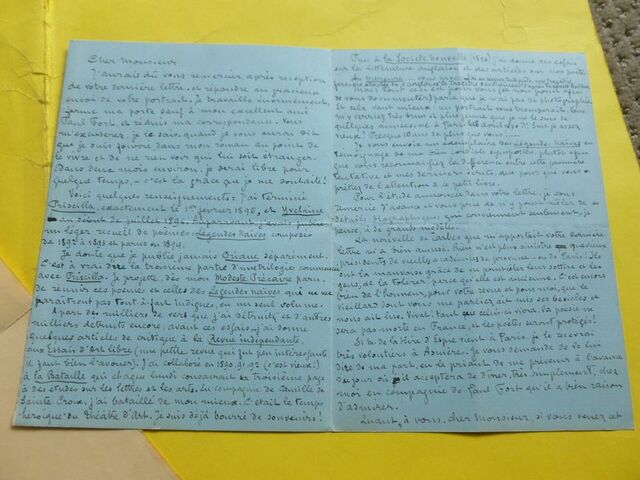 Cher Monsieur
J'aurais dû vous remercier après réception
de votre dernière lettre, et répondre au gracieux
envoi de votre portrait. Je travaille énormément,
ferme ma porte sauf à mon excellent ami
Paul Fort, et réduis ma correspondance. Vous
m'excuserez, je le sais, quand je vous aurai dit
que je suis dans mon roman au point de
le vivre et de ne rien voir qui lui soit étranger.
Dans deux mois environ, je serai libre pour
quelque temps, — c'est la grâce que je me souhaite!
Voici quelques renseignements: j'ai terminé
Priscilla, exactement le 1er février 1895, et Yvelaine
au début de juillet 1896. Auparavant, j'avais publié
un léger recueil de poésies: Légendes Naïves composé
de 1892 à 1893 et paru en 1894.
Je doute que je publie jamais Oriane séparément.
C'est à vrai dire la troisième partie d'une trilogie commencée
avec Priscilla. Je projette, dès mon Modeste Trécaire paru
de réunir ces poèmes et celles des Légendes naïves qui ne me
paraîtront pas tout-à-fait indignes, en un seul volume.
A part des milliers de vers que j'ai détruits et d'autres
milliers détruits encore, avant ces essais, j'ai donné
quelques articles de critique à la Revue indépendante,
aux Essais d'Art libre (une petite revue qui fut peu intéressante
il faut bien l'avouer). J'ai collaboré en 1890. 91. 92 (c'est vieux!)
à la Bataille qui consacrait sa troisième page
à des études sur les lettres et les arts. En compagnie de Camille de
Sainte Croix, j'ai bataillé de mon mieux. C'était le temps
héroïque du Théâtre d'Art. Je suis déjà bourré de souvenirs!
Puis à la Société Nouvelle j'ai donné des essais
sur la littérature anglaise et des articles sur nos poètes.
Au Mercure
Mais c'est
de vous documenter) parce que je n'ai pas de photographie
et cela vaut mieux: un portrait vous tromperait. Vous
m'y verriez très brun et plus jeune que je ne le suis de
quelques années
vu! Presque 10 ans de plus que vous..
Je vous envoie un exemplaire des Légendes naïves en
témoignage de ma bien cordiale sympathie, plutôt
que vous reconnaîtriez la différence entre cette première
tentative et mes derniers écrits, que pour que vous
prêtiez de l'attention à ce petit livre.
Pour l'étude annoncée dans votre lettre, je vous
remercie d'avance et vous prie de n'y point mêler de
détails biographiques, qui conviennent seulement, je
pense, à de grands modèles.
La nouvelle que m'apportait votre dernière
lettre m'a bien amusé. Rien n'est plus sinistre
présidents de vieilles académies de province, — ou de Paris: ils
ont la mauvaise grâce de ne pas oublier leurs sottises et les
gens, de la tolérer parce qu'elle est ancienne. C'est encore
bien de l'honneur, pour votre revue et pour moi, que le
vieillard dont vous me parliez ait mis ses besicles et
nous ait lus. Vivat! tant que celui-ci vivra, la poésie ne
sera pas morte en France, et les poètes seront protégés!
Si M. de la Hire d'Espie vient à Paris, je le recevrai
très volontiers à Asnières. Je vous demande de le lui
dire de ma part, en le priant de me prévenir à l'avance
du jour où il acceptera de dîner, très simplement, chez
moi en compagnie de Paul Fort qu'il a bien raison
d'admirer.
Quant, à vous, cher Monsieur, si vous venez, et